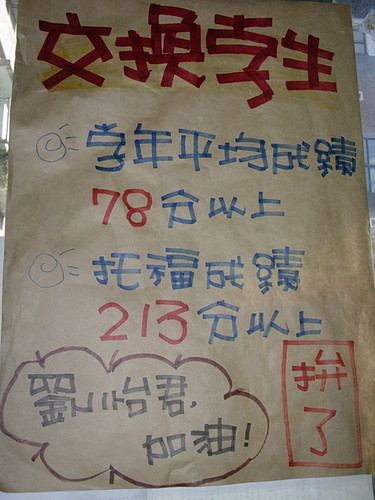 交換学生
学年平均成績
78分以上
托福成績
213分以上
劉怡君,
加油!
拚
了